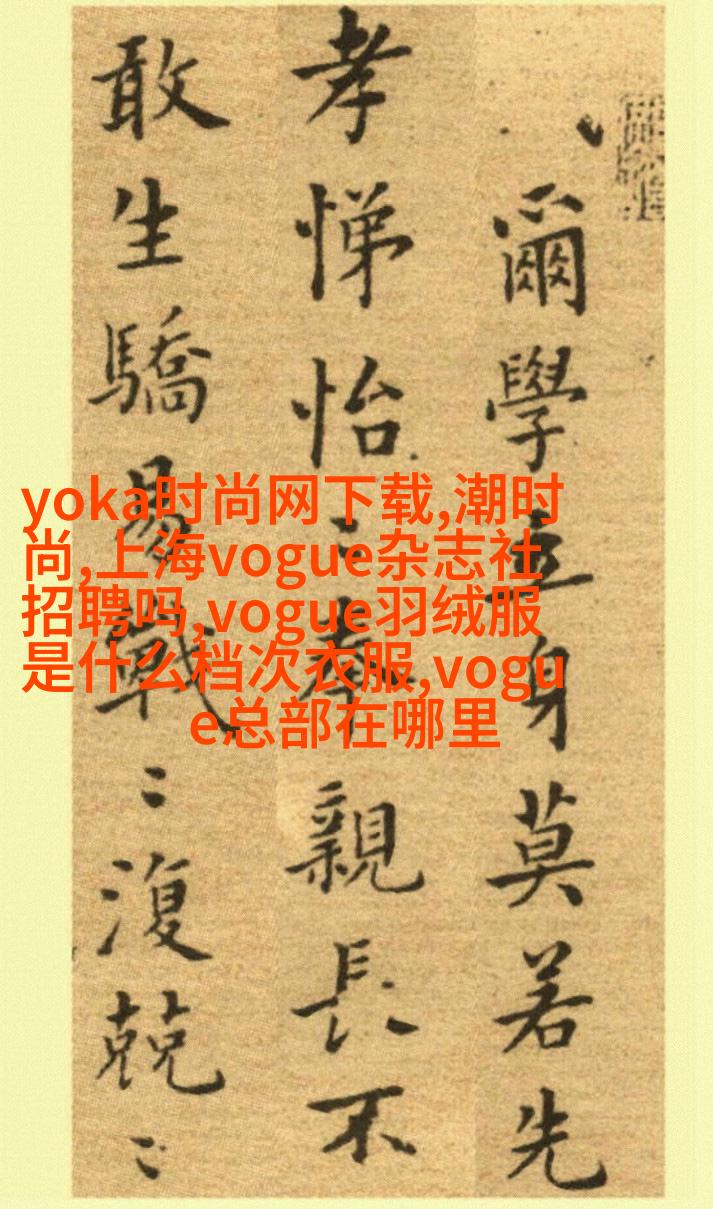 爾學立身莫若先
孝悌怡〻奉親長不
敢生驕易戰〻復兢〻
yoka时尚网下载,潮时
尚,上海vogue杂志社
招聘吗,vogue羽绒服
是什么档次衣服,vogu
e总部在哪里